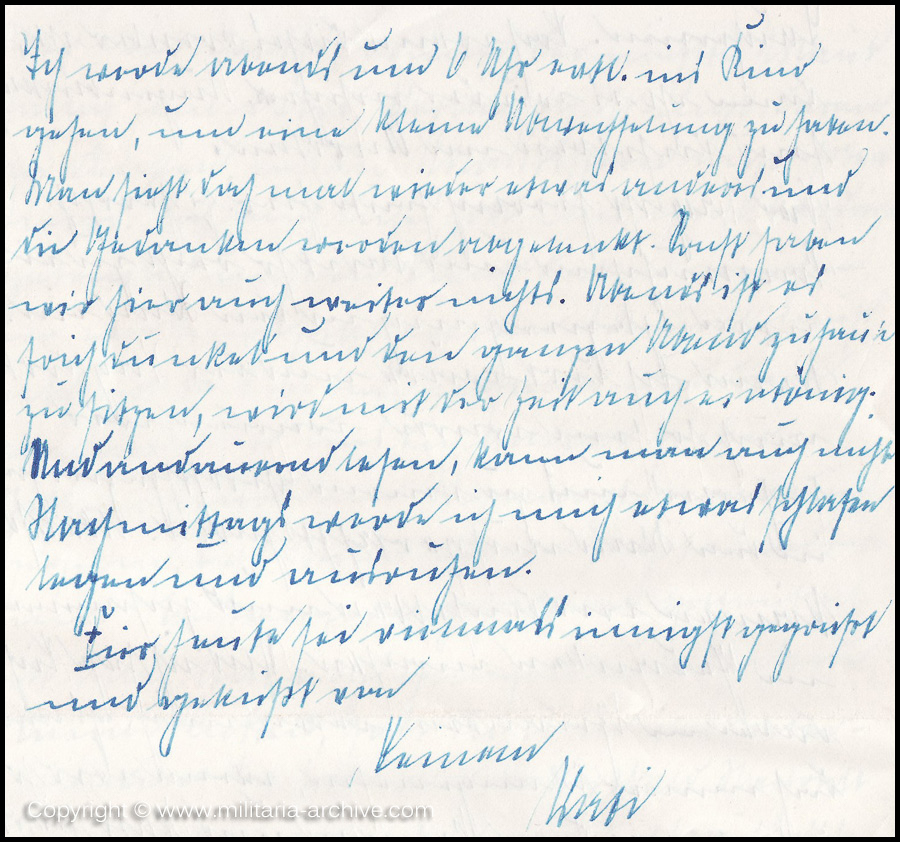 Ich werde abends um 6 Uhr evtl. ins Kino
gehen, um eine kleine Abwechselung zu haben.
Man sieht doch mal wieder etwas anders und
die Gedanken werden abgelenkt. Sonst haben
wir hier auch weiter nichts. Abends ist es
früh dunkel und den ganzen Abend zuhause
zu sitzen, wird mit der Zeit auch eintönig.
Und andauernd lesen, kann man auch nicht
Nachmittags werde ich mich etwas schlafen
legen und ausruhen.
Für heute sei vielmals innigst gegrüßt
und geküßt von
Deinem
Copyright © www.militaria-archive.com